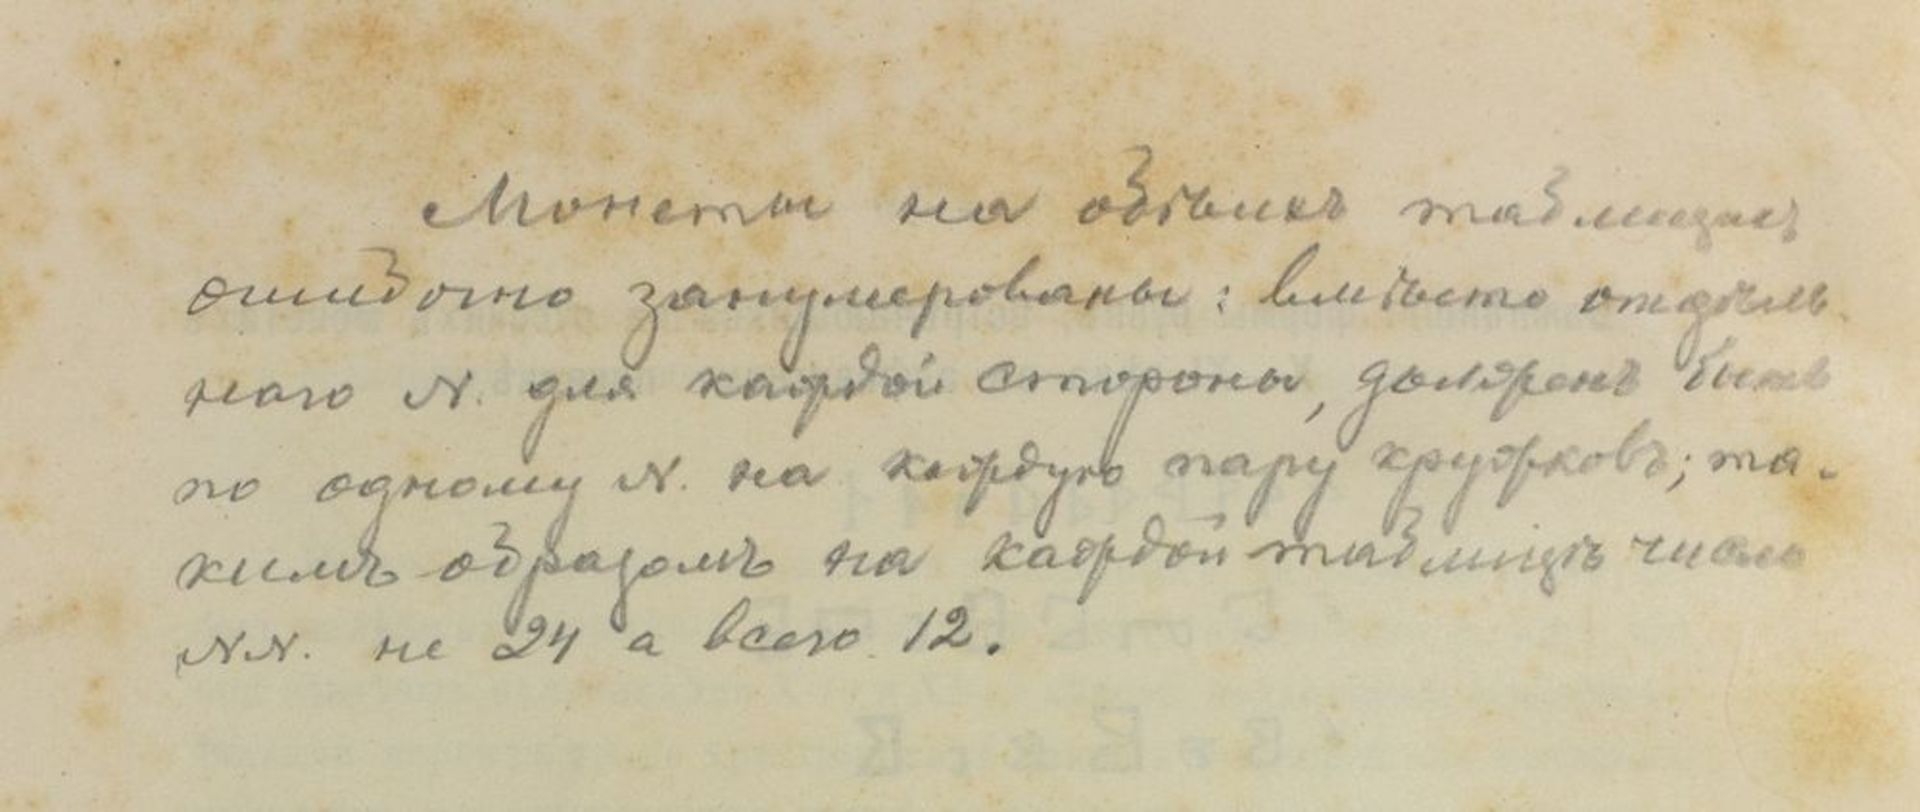 Монеты на обѣихъ таблицахъ
ошибочно занумерованы: вмѣсто отдѣль
наго N. для каждой стороны, долженъ быть
по одному N. на каждую пару кружковъ; та-
кимъ образомъ на каждой таблицѣ число
NN. не 24 а всего 12.